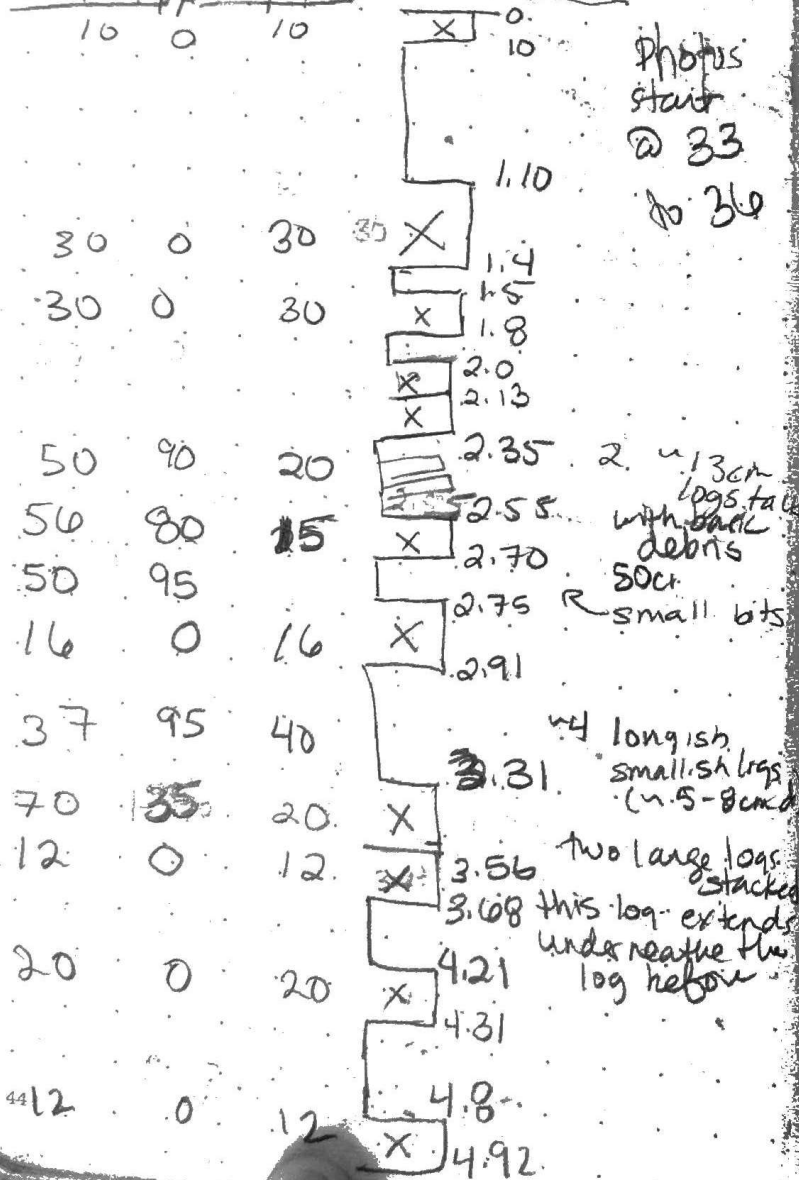 10 0 10
0.
10
Photos
start
@ 33
to 36
1.10
30 0 30 30 X
1.4
1.5
30 0 30 X
1.8
2.0
X
2.13
X
50 90 20 2.35 2 ~13cm
logs
2.55
56 80 15 X with bark
debris
2.70
50 95 50cm
2.75
small bits
16 0 16 X
2.91
37 95 40 ~4 longish
smallish logs
3.31 (~.5-8cmd
70 20 X
12 0 12 X 3.56 two large logs
stacked
3.68 this log extends
underneathe the
log before
4.21
20 0 20 X
4.31
4.8
44
12 0 12 X
4.92